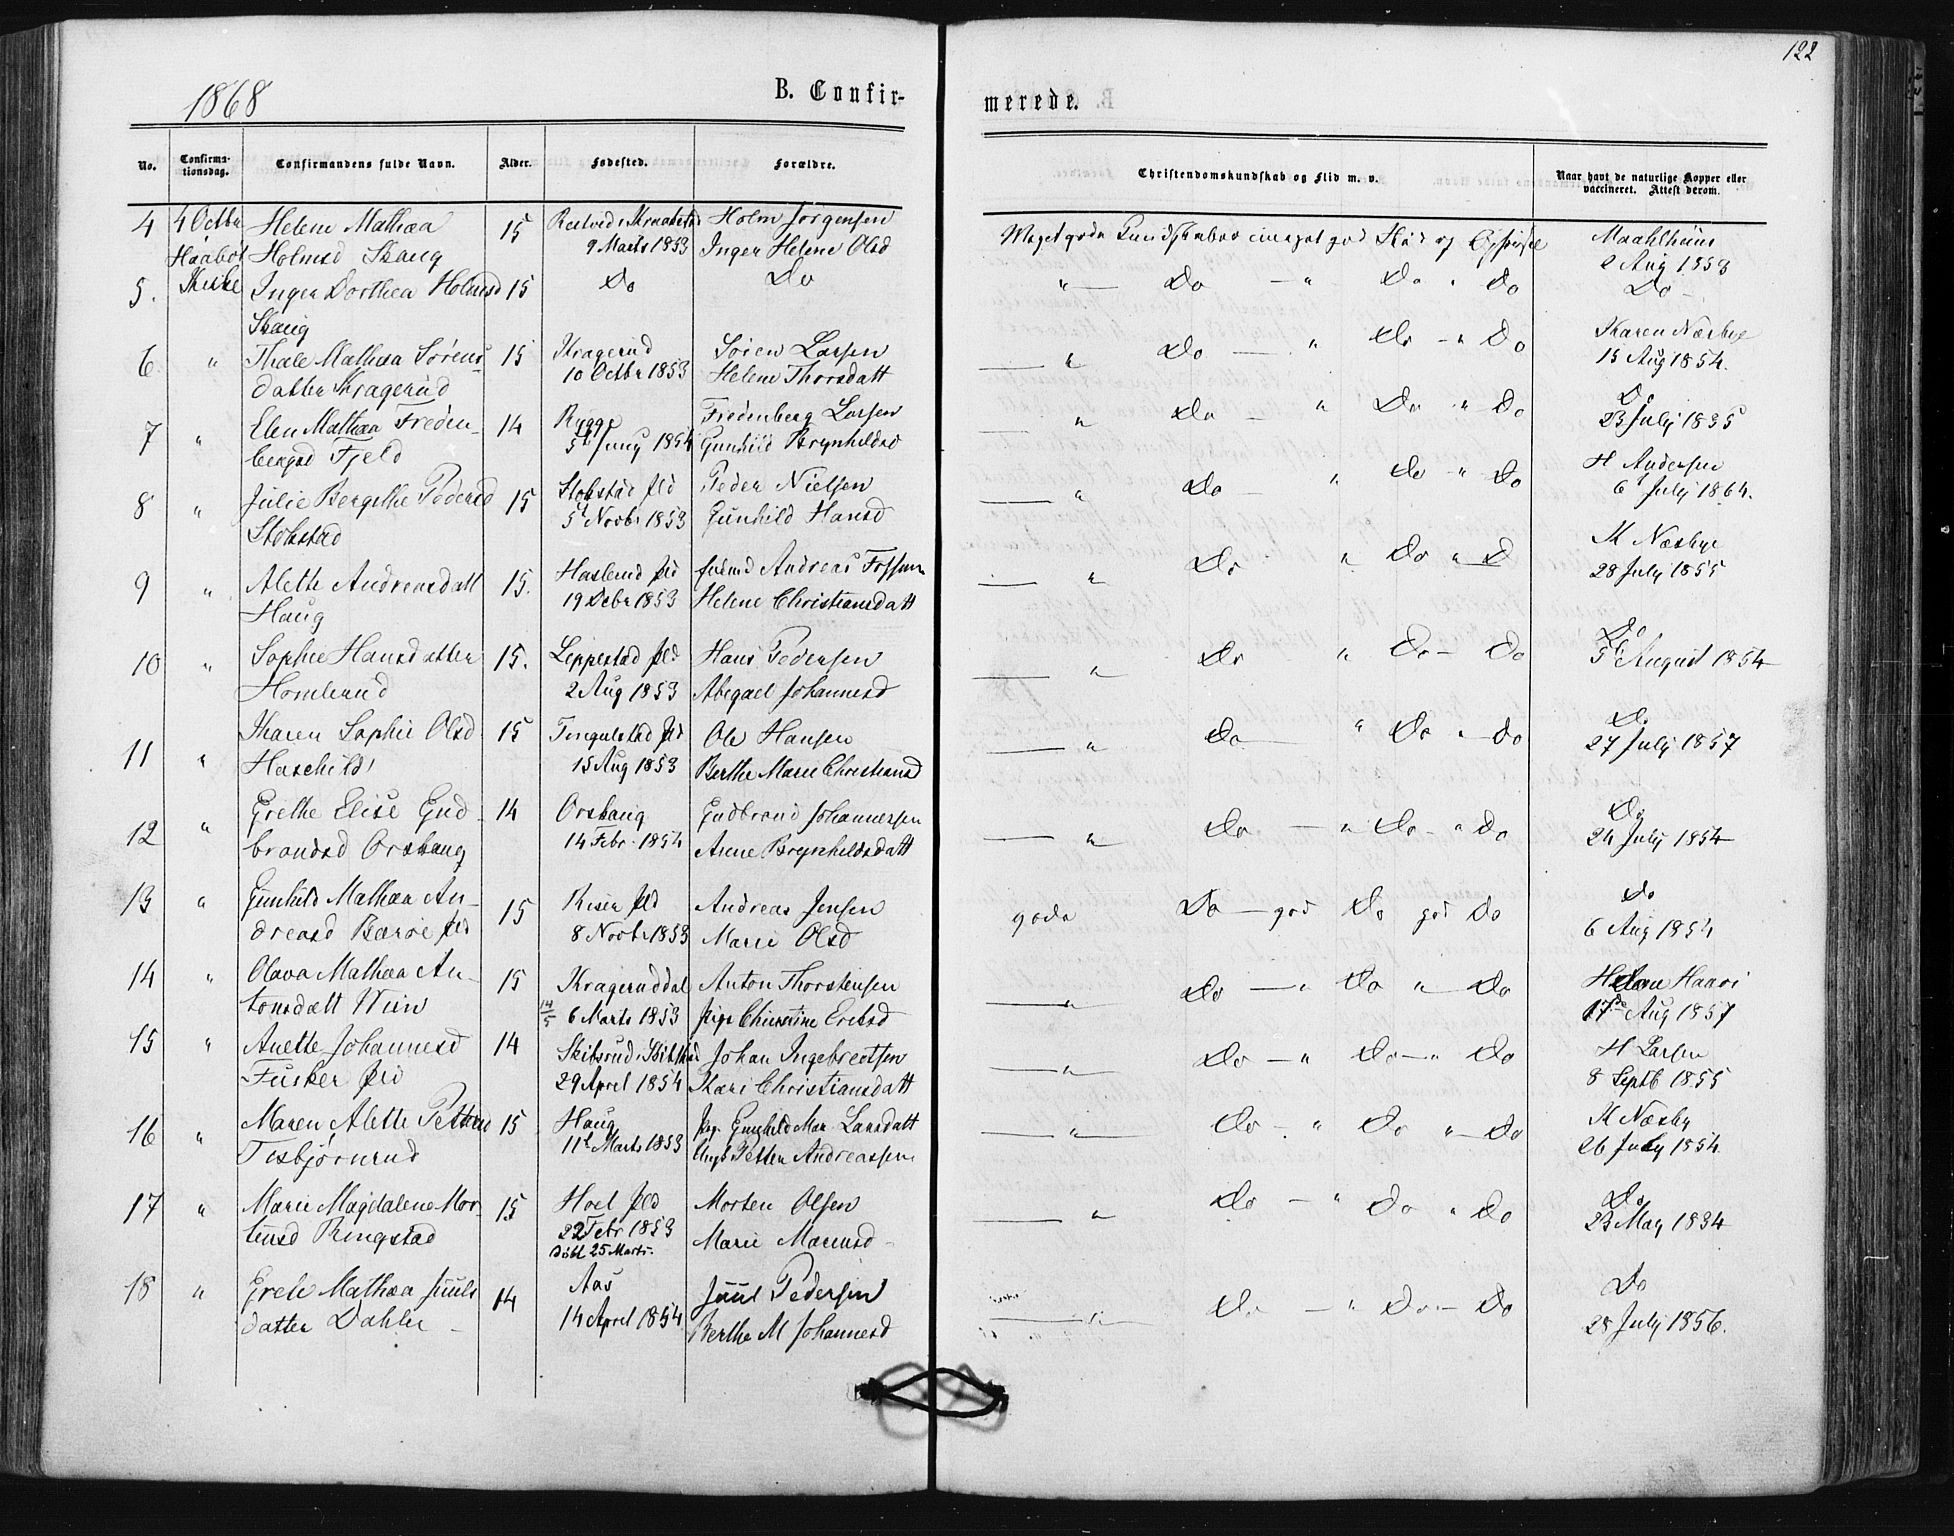 122
1868 B. Confirmerede.
No. Confirmationsdag. Confirmandens fulde Navn. Alder. Fødested. Forældre. Christendomskundskab og Flid m. v. Naar havt de naturlige Kopper eller vaccineret. Attest derom.
4 4 Octbr Helene Mathæa 15 Holm Jørgensen Meget gode Kundskaber meget god Flid og
Haabøl Holmsd Skaug 9 Marts 1853 Inger Helene Olsd 2 Aug 1853
5. Kirke Inger Dorthea Holmsd 15 Do Do " Do " Do " Do Do
Skaug
6 " Thale Mathæa Sørens- 15 Kragerud Søren Larsen " Do " Do " Do Karen Næsbye
datter Kragerud 10 Octbr 1853 Helene Thorsdatt 15 Aug 1854.
7 " Elen Mathæa Freden- 14 Rygge Fredenberg Larsen " Do " Do " Do Do
bergsd Fjeld 5t Juny 1854 Gunhild Brynhildsd 23 July 1855
8 " Julie Bergithe Pedersd 15 Stokstad Peder Nielsen " Do " Do " Do H Andersen
Stokstad 5t Novbr 1853 Gunhild Hansd 6t July 1864.
9 " Alette Andreasdatt 15. Haslerud Andreas " Do " Do " D M Næsbye
Haug 19 Debr 1853 Helene Christiansdatt 28 July 1855
10 " Sophie Hansdatter 15. Leppestad Hans Pedersen " Do " Do Do Do
Hornlund 2 Aug 1853 Abegael Johannesd 5t August 1854
11 " Karen Sophie Olsd 15 Tingulstad Ole Hansen " Do " Do " Do Do
Haschild 15 Aug 1853 Berthe Marie Christiansd 27 July 1857
12 " Grethe Elise Gud- 14 Orskaug Gudbrand Johannessen " Do " Do " Do Do
brandsd Orskaug 14 Febr. 1854 Anne Brynhildsdatt 24 July 1854
13 " Gunhild Mathæa An- 15 Risen Andreas Jensen gode Do god Do god Do Do
dreasd Barøe 8 Novbr 1853 Marie Olsd 6 Aug 1854
14 " Olava Mathæa An- 15 Krageruddal Anton Thorstensen " Do " Do " Do Haari
tonsdatt Wiin 6 Marts 1853 Christine 17de Aug 1857
15 " Anette Johannesd 14 Skibsrud Johan Ingebretsen " Do " Do " Do H Larsen
Fusker 29 April 1854 Kari Christiansdatt 8 Septb 1855
16 " Maren Alette Pettersd 15 Haug Gunhild Mar. Larsdatt " Do " Do " Do M Næsby
Tisbjørnrud 11t Marts 1853 Petter Andreassen 26 July 1854
17 " Marie Magdalene Mor- 15 Hoel Morten Olsen " Do " Do " Do Do
tensd Ringstad 22 Febr 1853 Marie 23 May 1854
Døbt 25 Marts.
18 " Grete Mathæa Juuls 14 Aas Juul Pedersen " Do " Do Do Do
datter Dahler 14 April 1854 Berthe M Johannesd 28 July 1856.